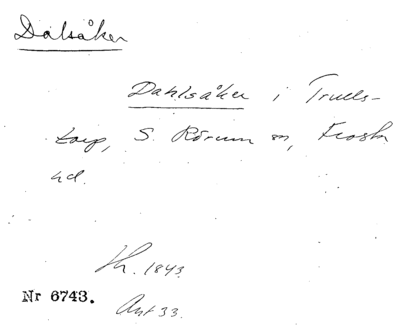 Dalsåker
Dahlsåker i Trulls-
torp, S. Rörum sn, Frosta
hd.
Sk. 1843.
Nr 6743.
Avs 33.